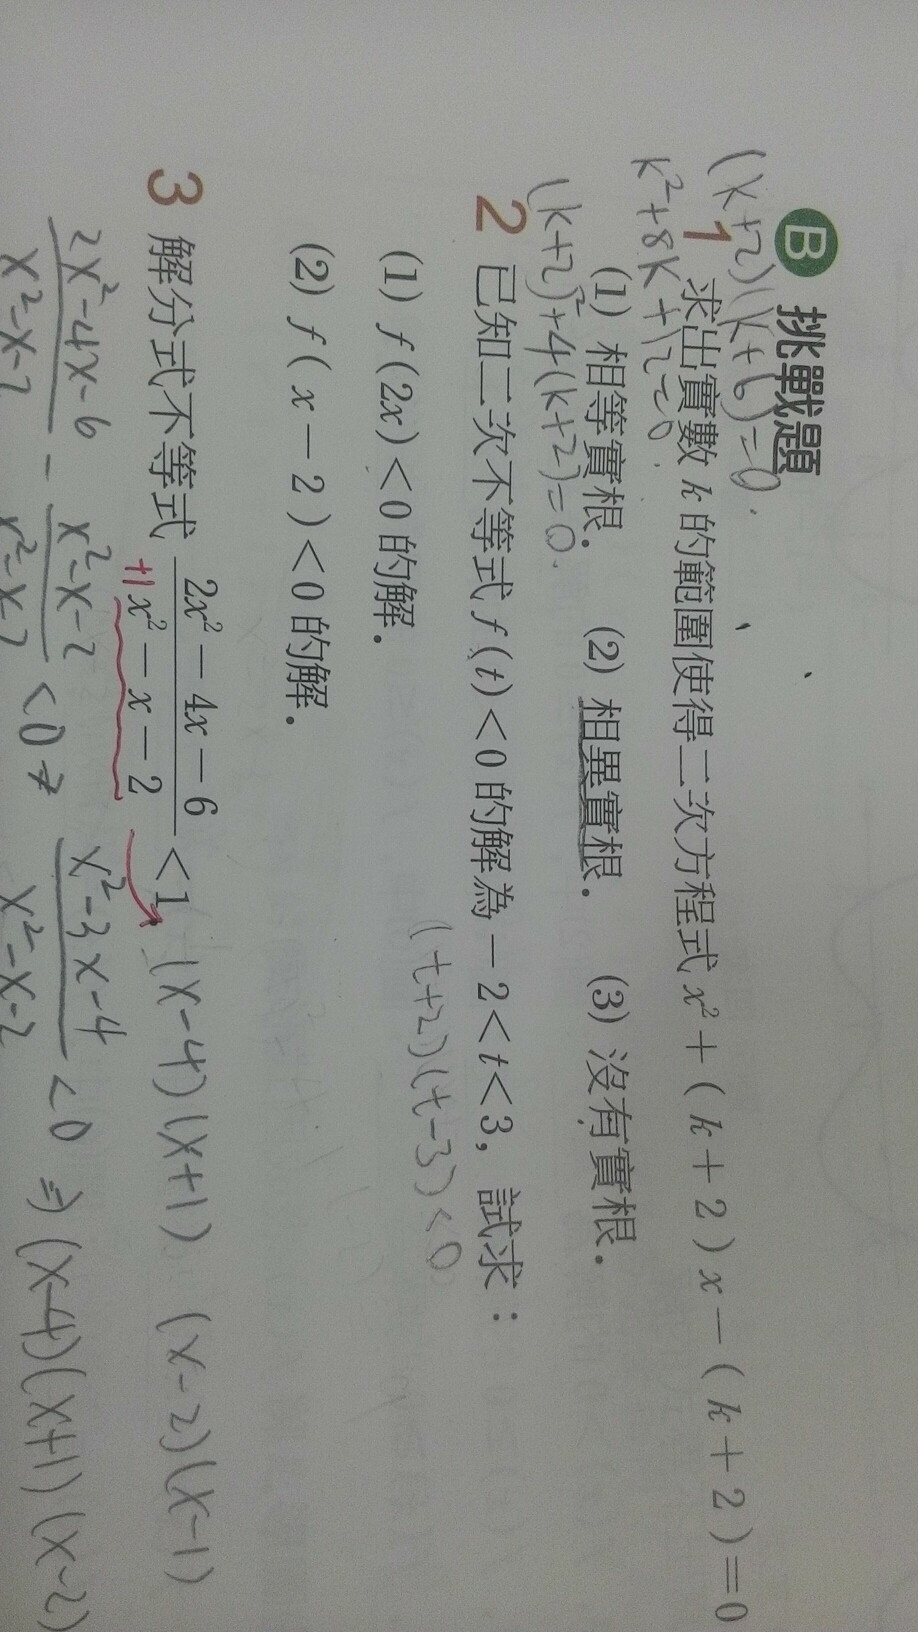 B 挑戰題
(k+2)(k+6)=0.
k²+8k+12=0
1 求出實數 k 的範圍使得二次方程式 x²+(k+2)x-(k+2)=0
(1) 相等實根. (2) 相異實根. (3) 沒有實根.
(k+2)²+4(k+2)=0.
2 已知二次不等式 f(t)<0 的解為 -2<t<3, 試求:
(t+2)(t-3)<0
(1) f(2x)<0 的解.
(2) f(x-2)<0 的解.
3 解分式不等式 (2x²-4x-6)/(x²-x-2) <1
+1
(x-4)(x+1) (x-2)(x-1)
(2x²-4x-6)/(x²-x-2) - (x²-x-2)/(x²-x-2) <0 ⇒ (x²-3x-4)/(x²-x-2) <0 ⇒ (x-4)(x+1)(x-2)